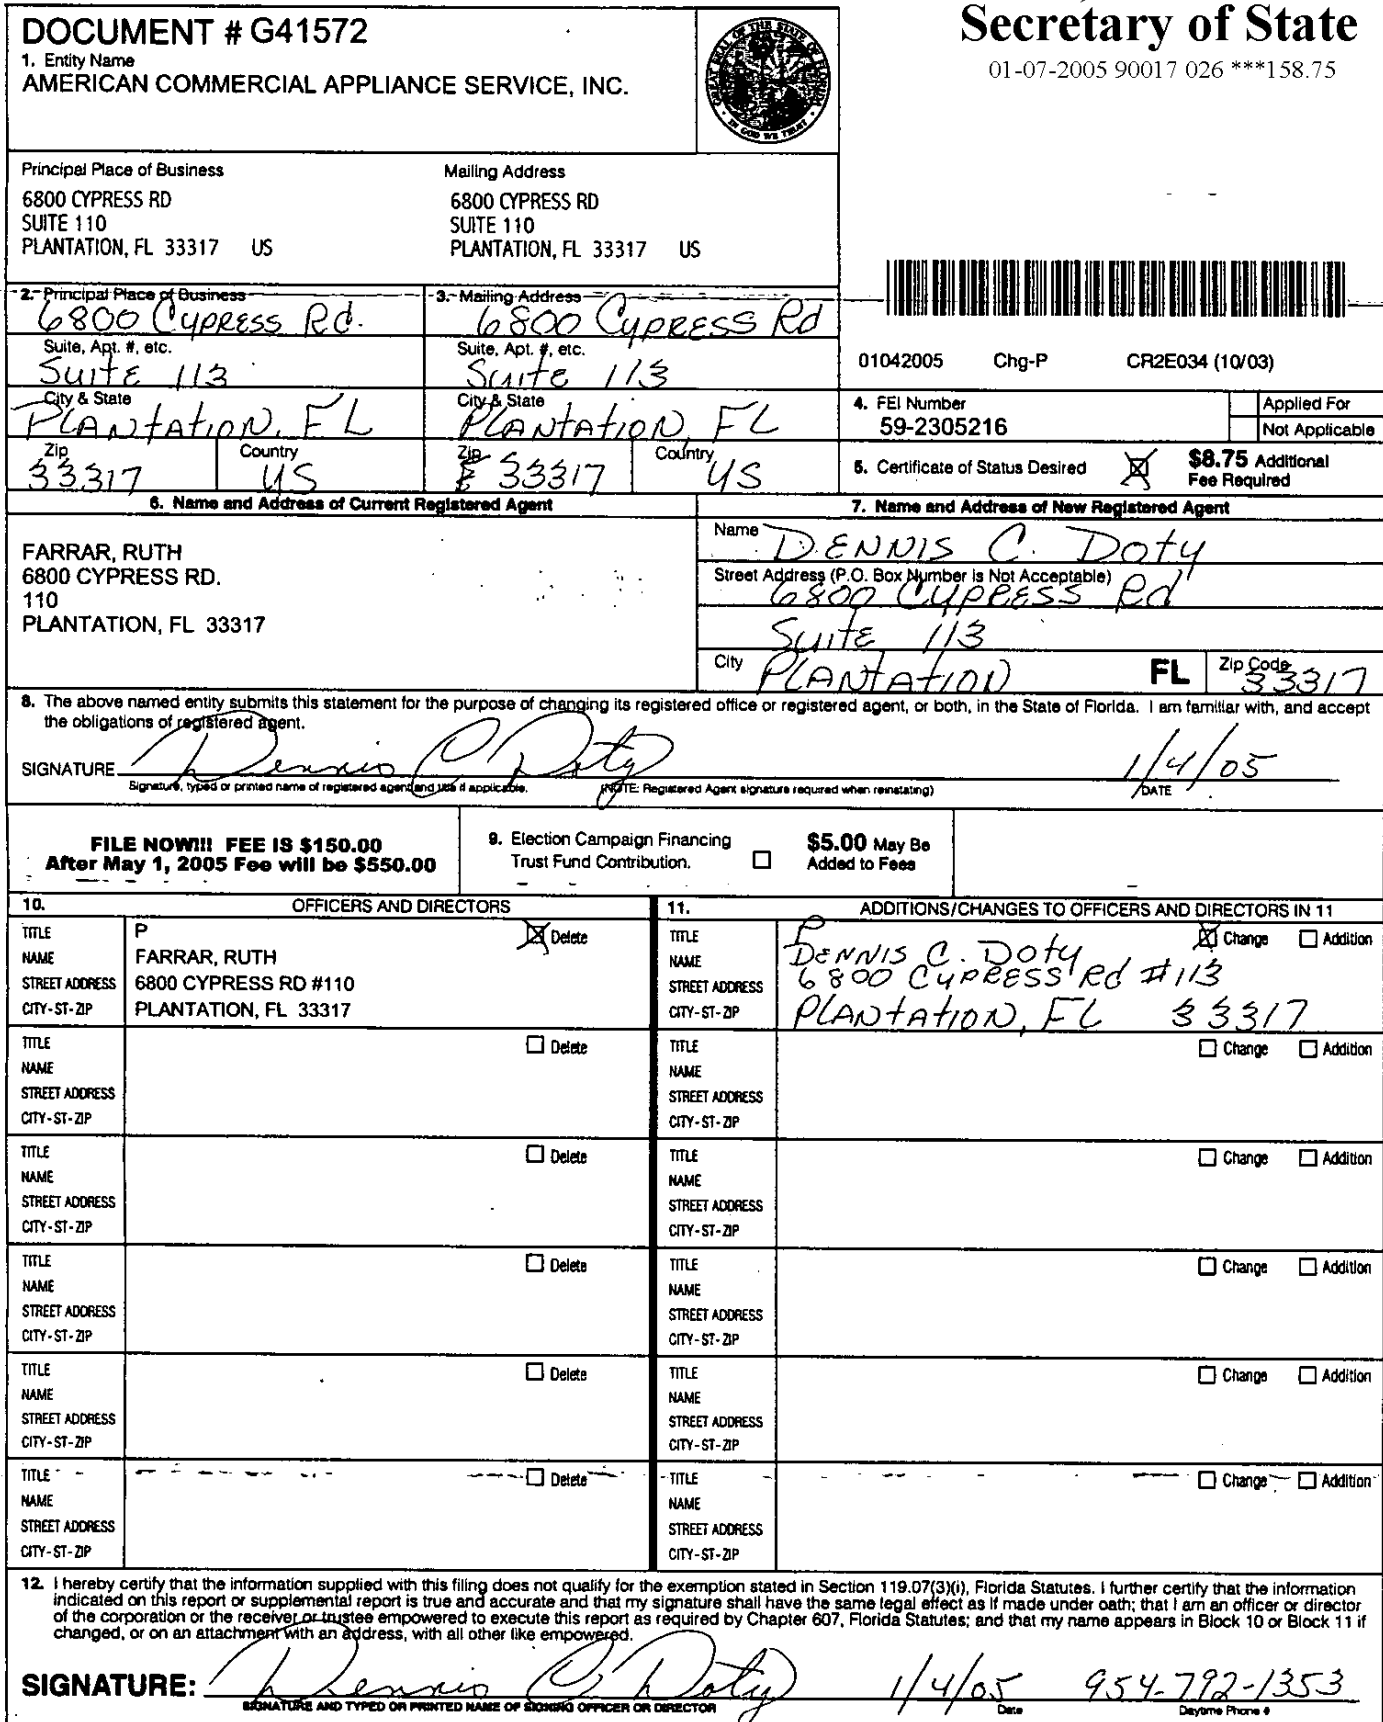 DOCUMENT # G41572
1. Entity Name
AMERICAN COMMERCIAL APPLIANCE SERVICE, INC.
GREAT SEAL OF THE STATE OF FLORIDA
IN GOD WE TRUST
Secretary of State
01-07-2005 90017 026 ***158.75
Principal Place of Business
6800 CYPRESS RD
SUITE 110
PLANTATION, FL 33317 US
Mailing Address
6800 CYPRESS RD
SUITE 110
PLANTATION, FL 33317 US
2. Principal Place of Business
6800 Cypress Rd.
Suite, Apt. #, etc.
Suite 113
City & State
Plantation, FL
Zip Country
33317 US
3. Mailing Address
6800 Cypress Rd
Suite, Apt. #, etc.
Suite 113
City & State
Plantation, FL
Zip Country
33317 US
01042005 Chg-P CR2E034 (10/03)
4. FEI Number
59-2305216
Applied For
Not Applicable
5. Certificate of Status Desired
$8.75 Additional
Fee Required
6. Name and Address of Current Registered Agent
FARRAR, RUTH
6800 CYPRESS RD.
110
PLANTATION, FL 33317
7. Name and Address of New Registered Agent
Name Dennis C. Doty
Street Address (P.O. Box Number is Not Acceptable)
6800 Cypress Rd
Suite 113
City Plantation FL Zip Code 33317
8. The above named entity submits this statement for the purpose of changing its registered office or registered agent, or both, in the State of Florida. I am familiar with, and accept
the obligations of registered agent.
SIGNATURE Dennis C Doty 1/4/05
Signature, typed or printed name of registered agent and title if applicable. (NOTE: Registered Agent signature required when reinstating) DATE
FILE NOW!!! FEE IS $150.00
After May 1, 2005 Fee will be $550.00
9. Election Campaign Financing
Trust Fund Contribution.
$5.00 May Be
Added to Fees
10. OFFICERS AND DIRECTORS
TITLE P Delete
NAME FARRAR, RUTH
STREET ADDRESS 6800 CYPRESS RD #110
CITY-ST-ZIP PLANTATION, FL 33317
TITLE Delete
NAME
STREET ADDRESS
CITY-ST-ZIP
TITLE Delete
NAME
STREET ADDRESS
CITY-ST-ZIP
TITLE Delete
NAME
STREET ADDRESS
CITY-ST-ZIP
TITLE Delete
NAME
STREET ADDRESS
CITY-ST-ZIP
TITLE Delete
NAME
STREET ADDRESS
CITY-ST-ZIP
11. ADDITIONS/CHANGES TO OFFICERS AND DIRECTORS IN 11
TITLE P Change Addition
NAME Dennis C. Doty
STREET ADDRESS 6800 Cypress Rd #113
CITY-ST-ZIP Plantation, FL 33317
TITLE Change Addition
NAME
STREET ADDRESS
CITY-ST-ZIP
TITLE Change Addition
NAME
STREET ADDRESS
CITY-ST-ZIP
TITLE Change Addition
NAME
STREET ADDRESS
CITY-ST-ZIP
TITLE Change Addition
NAME
STREET ADDRESS
CITY-ST-ZIP
TITLE Change Addition
NAME
STREET ADDRESS
CITY-ST-ZIP
12. I hereby certify that the information supplied with this filing does not qualify for the exemption stated in Section 119.07(3)(i), Florida Statutes. I further certify that the information
indicated on this report or supplemental report is true and accurate and that my signature shall have the same legal effect as if made under oath; that I am an officer or director
of the corporation or the receiver or trustee empowered to execute this report as required by Chapter 607, Florida Statutes; and that my name appears in Block 10 or Block 11 if
changed, or on an attachment with an address, with all other like empowered.
SIGNATURE: Dennis C. Doty 1/4/05 954-792-1353
SIGNATURE AND TYPED OR PRINTED NAME OF SIGNING OFFICER OR DIRECTOR Date Daytime Phone #